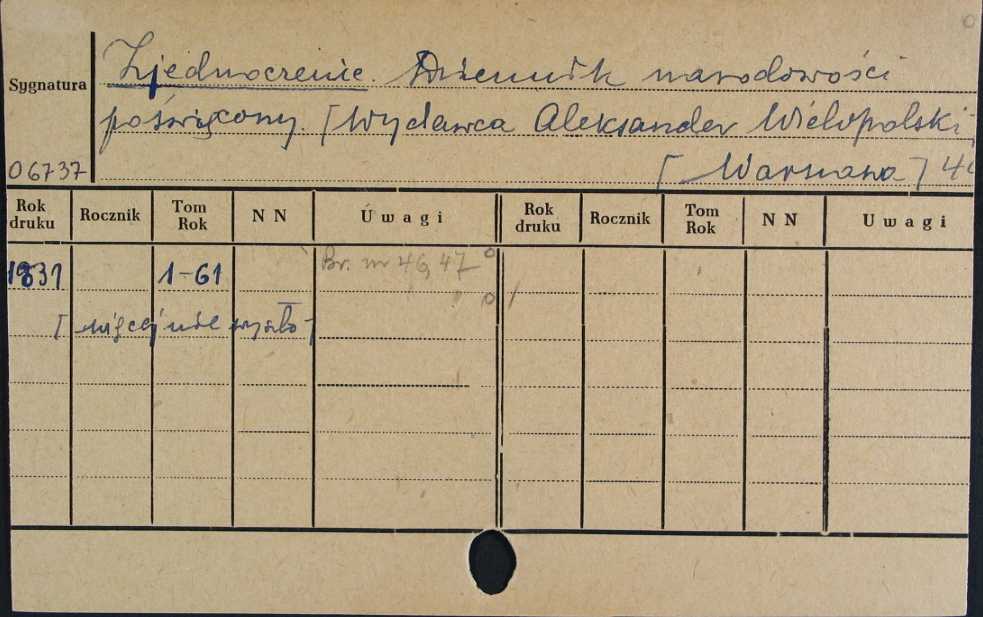 Zjednoczenie. Dziennik narodowości
Sygnatura
poświęcony. [Wydawca Aleksander Wielopolski,
06737
[Warszawa] 4
Rok druku Rocznik Tom Rok N N Uwagi Rok druku Rocznik Tom Rok N N Uwagi
1831 1-61 Br. nr 46, 47
[więcej nie wyszło]